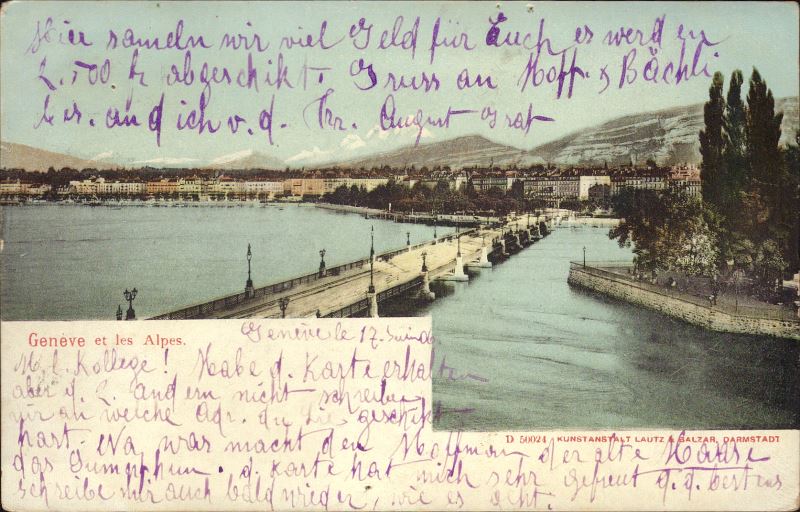 Hier sameln wir viel Geld für Euch es werden
2.500 fr abgeschikt. Gruss an Hoff. & Bächli
bes. and ich v. d. Fr. August Graf
Genève et les Alpes.
Genève le 17. Juin 06
M. l. Kollege! Habe d. Karte erhalten
aber d. 2. andern nicht schreibe
mir an welche Adr. du sie geschikt
hast. Na was macht den Hoffman der alte
das Sumpfhun. d. Karte hat mich sehr gefreut d. d. bestens
schreibe mir auch bald wieder, wie es geht.
D 50024 KUNSTANSTALT LAUTZ & BALZAR, DARMSTADT